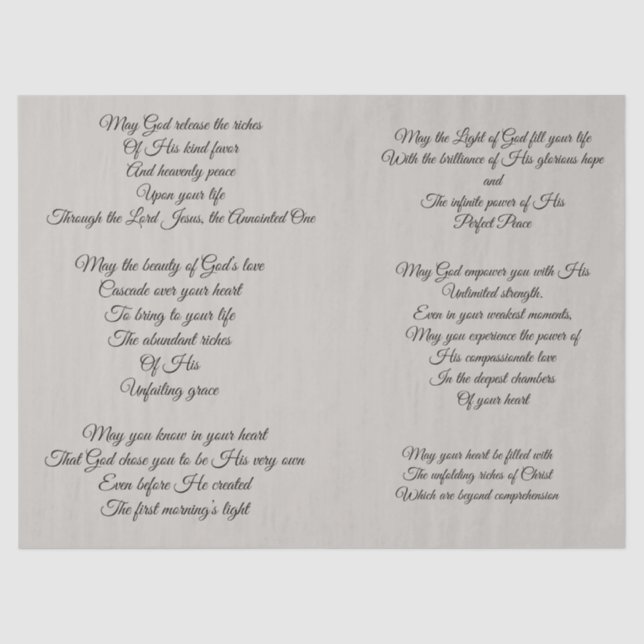 May God release the riches
Of His kind favor
And heavenly peace
Upon your life
Through the Lord Jesus, the Annointed One
May the beauty of God's love
Cascade over your heart
To bring to your life
The abundant riches
Of His
Unfailing grace
May you know in your heart
That God chose you to be His very own
Even before He created
The first morning's light
May the Light of God fill your life
With the brilliance of His glorious hope
and
The infinite power of His
Perfect Peace
May God empower you with His
Unlimited strength.
Even in your weakest moments,
May you experience the power of
His compassionate love
In the deepest chambers
Of your heart
May your heart be filled with
The unfolding riches of Christ
Which are beyond comprehension